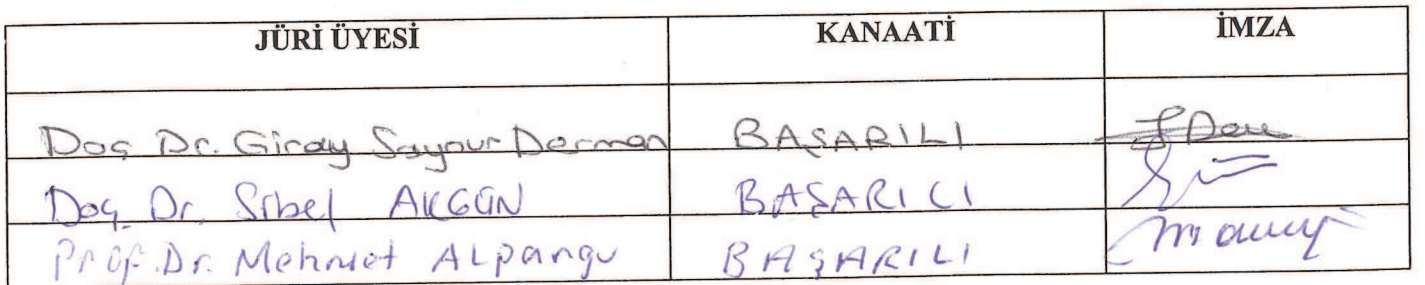 JÜRİ ÜYESİ KANAATİ İMZA
Doç Dr. Giray Saynur Derman BAŞARILI
Doç. Dr. Sibel AKGÜN BAŞARILI
Prof. Dr. Mehmet ALpargu BAŞARILI